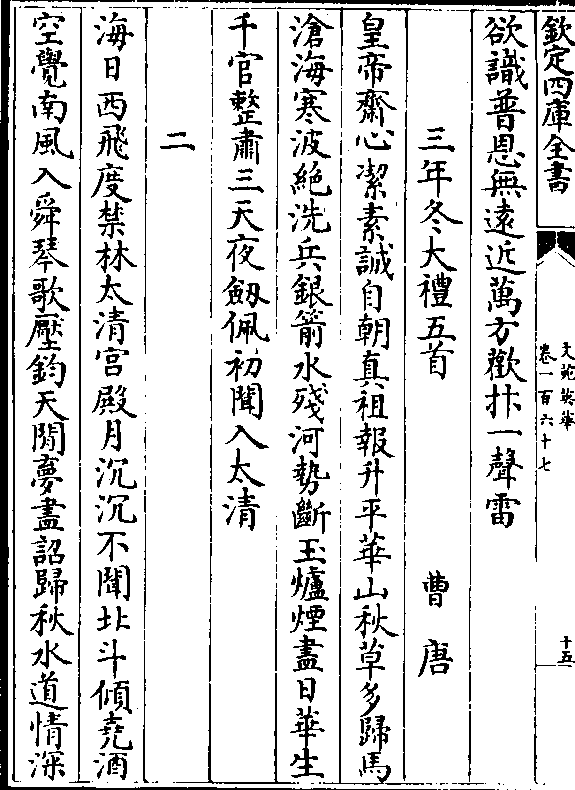 欽定四庫全書
文苑英華
卷一百六十七
十五
欲識普恩無遠近萬方歡抃一聲雷
三年冬大禮五首 曹唐
皇帝齋心潔素誠自朝真祖報升平華山秋草多歸馬
滄海寒波絶洗兵銀箭水殘河勢斷玉爐煙盡日華生
千官整肅三天夜劔佩初聞入太清
二
海日西飛度禁林太清宫殿月沉沉不聞北斗傾堯酒
空覺南風入舜琴歌壓鈞天閒夢盡詔歸秋水道情深